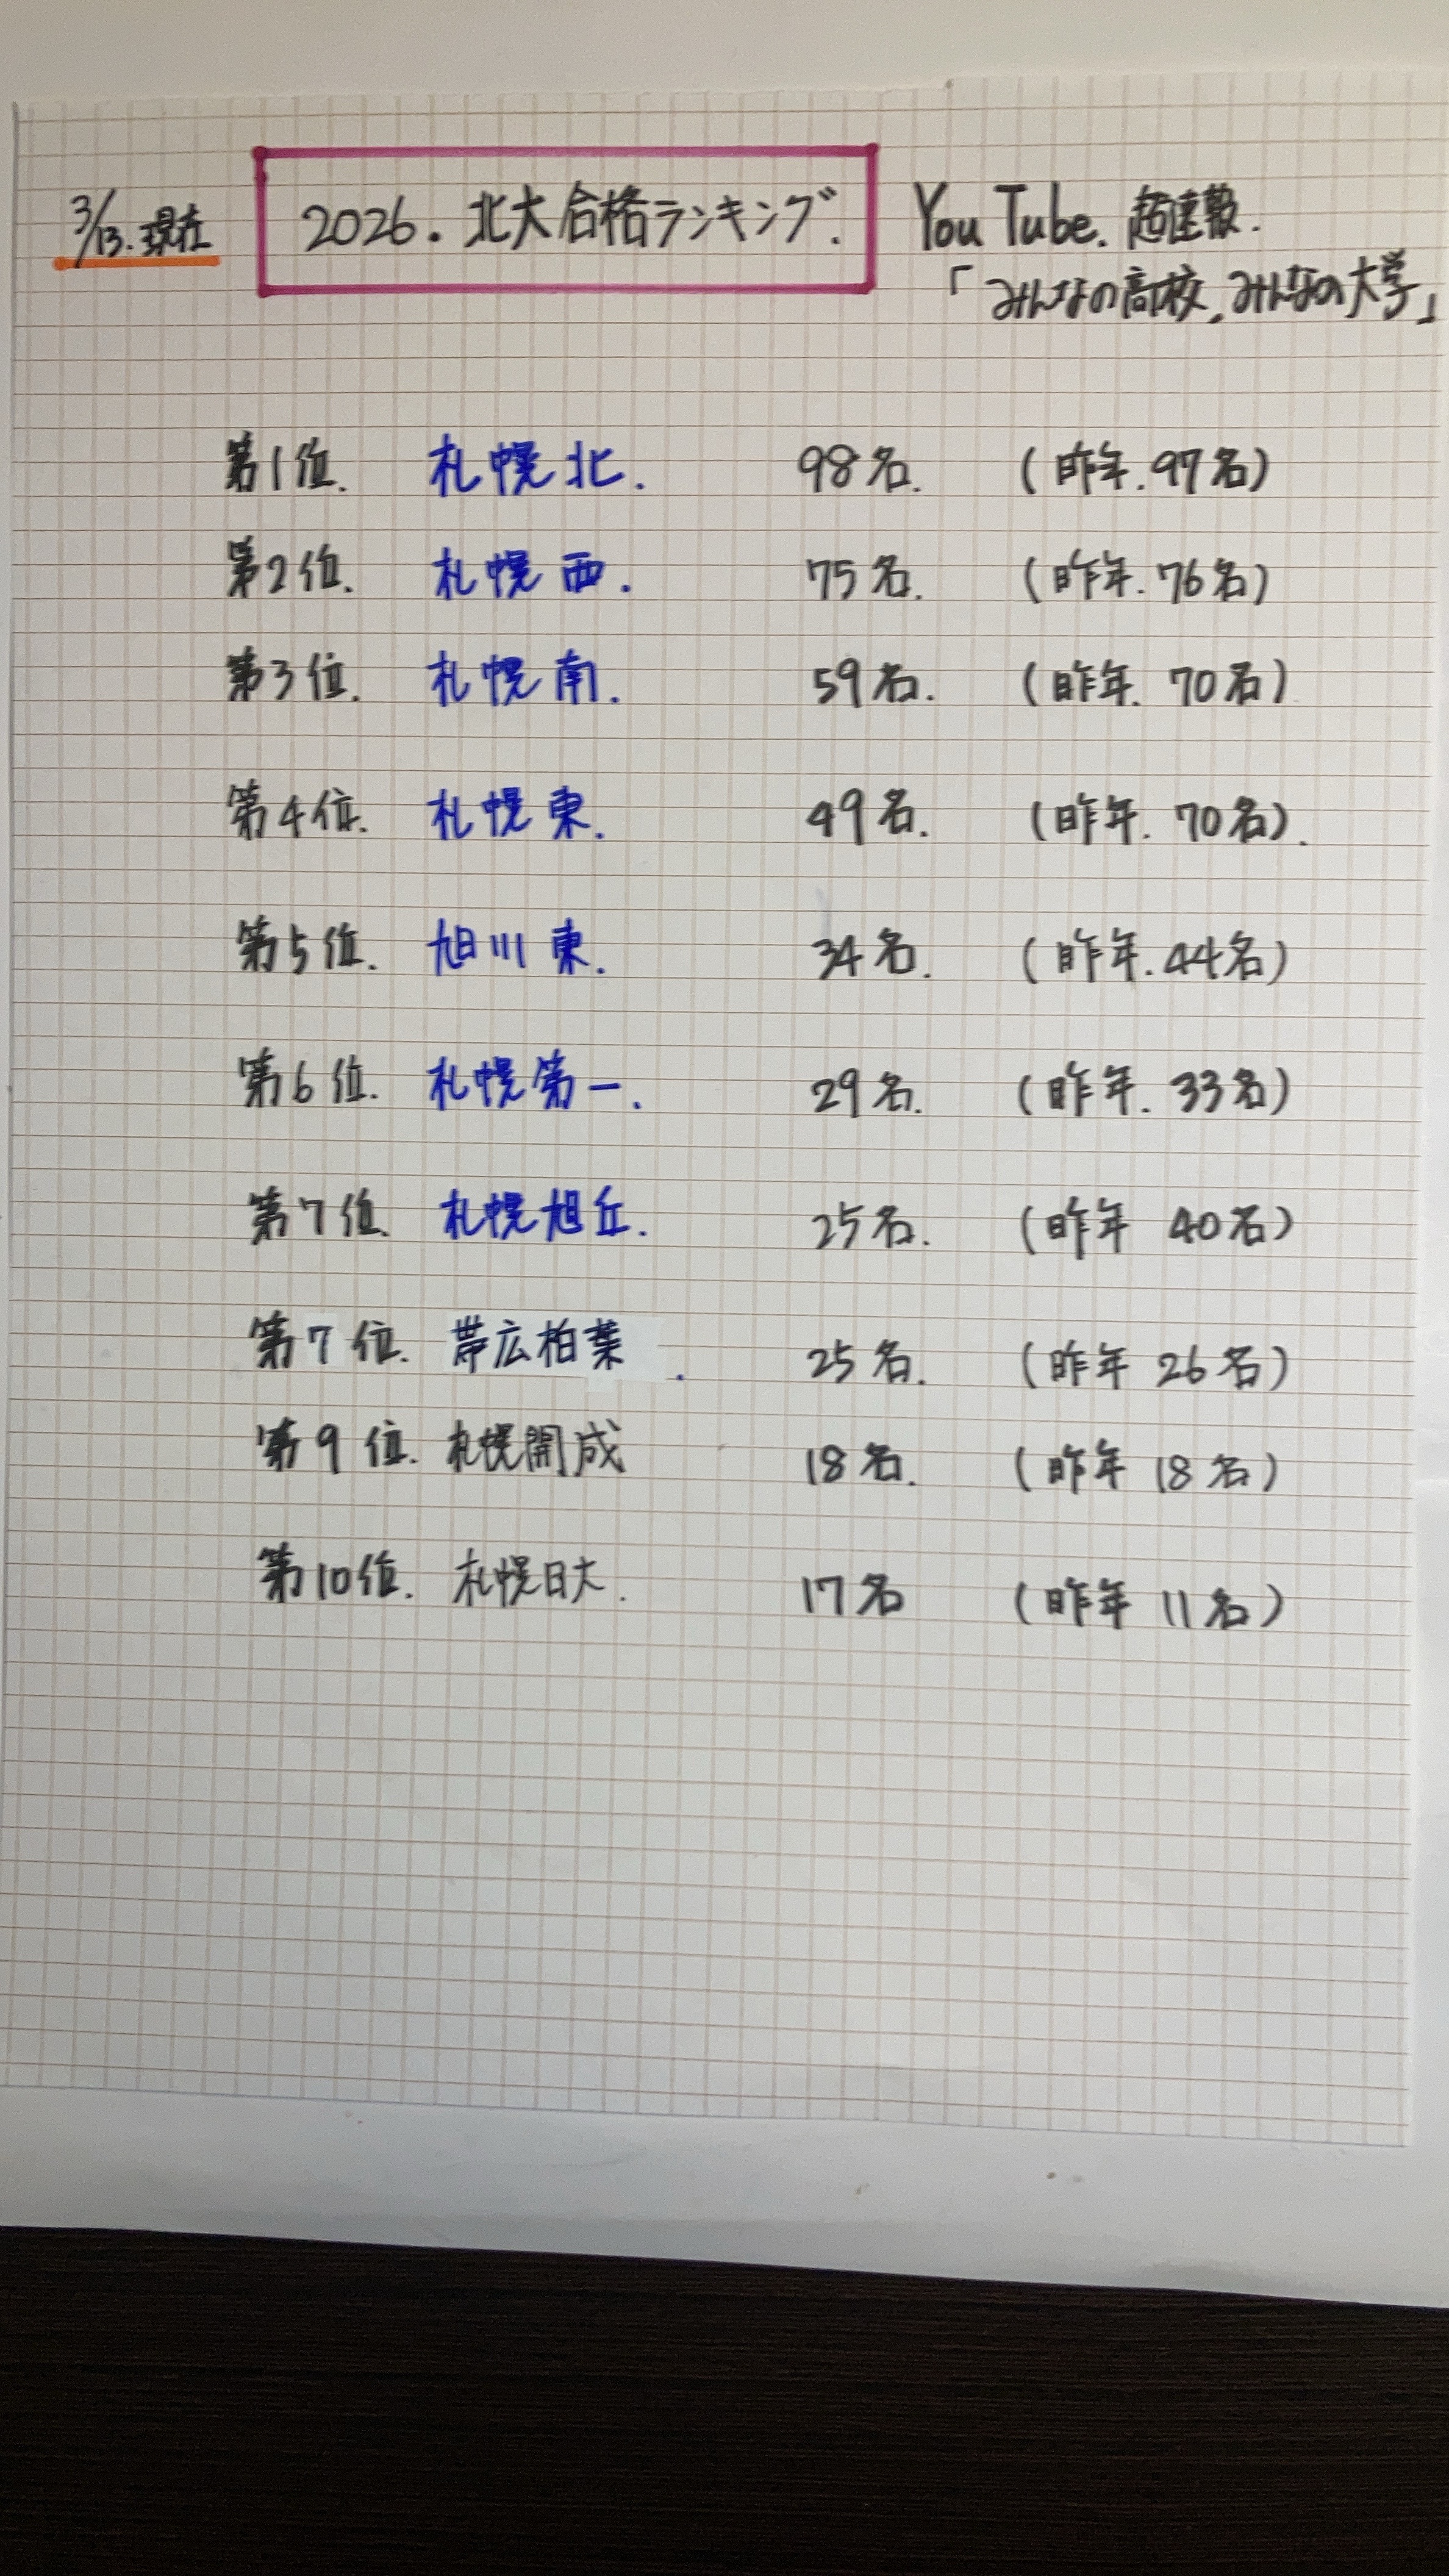 3/13.現在 2026.北大合格ランキング. YouTube.超速報.
「みんなの高校,みんなの大学」
第1位. 札幌北. 98名. (昨年.97名)
第2位. 札幌西. 75名. (昨年.76名)
第3位. 札幌南. 59名. (昨年.70名)
第4位. 札幌東. 49名. (昨年.70名).
第5位. 旭川東. 34名. (昨年.44名)
第6位. 札幌第一. 29名. (昨年.33名)
第7位. 札幌旭丘. 25名. (昨年 40名)
第7位. 帯広柏葉. 25名. (昨年 26名)
第9位. 札幌開成 18名. (昨年 18名)
第10位. 札幌日大. 17名 (昨年 11名)